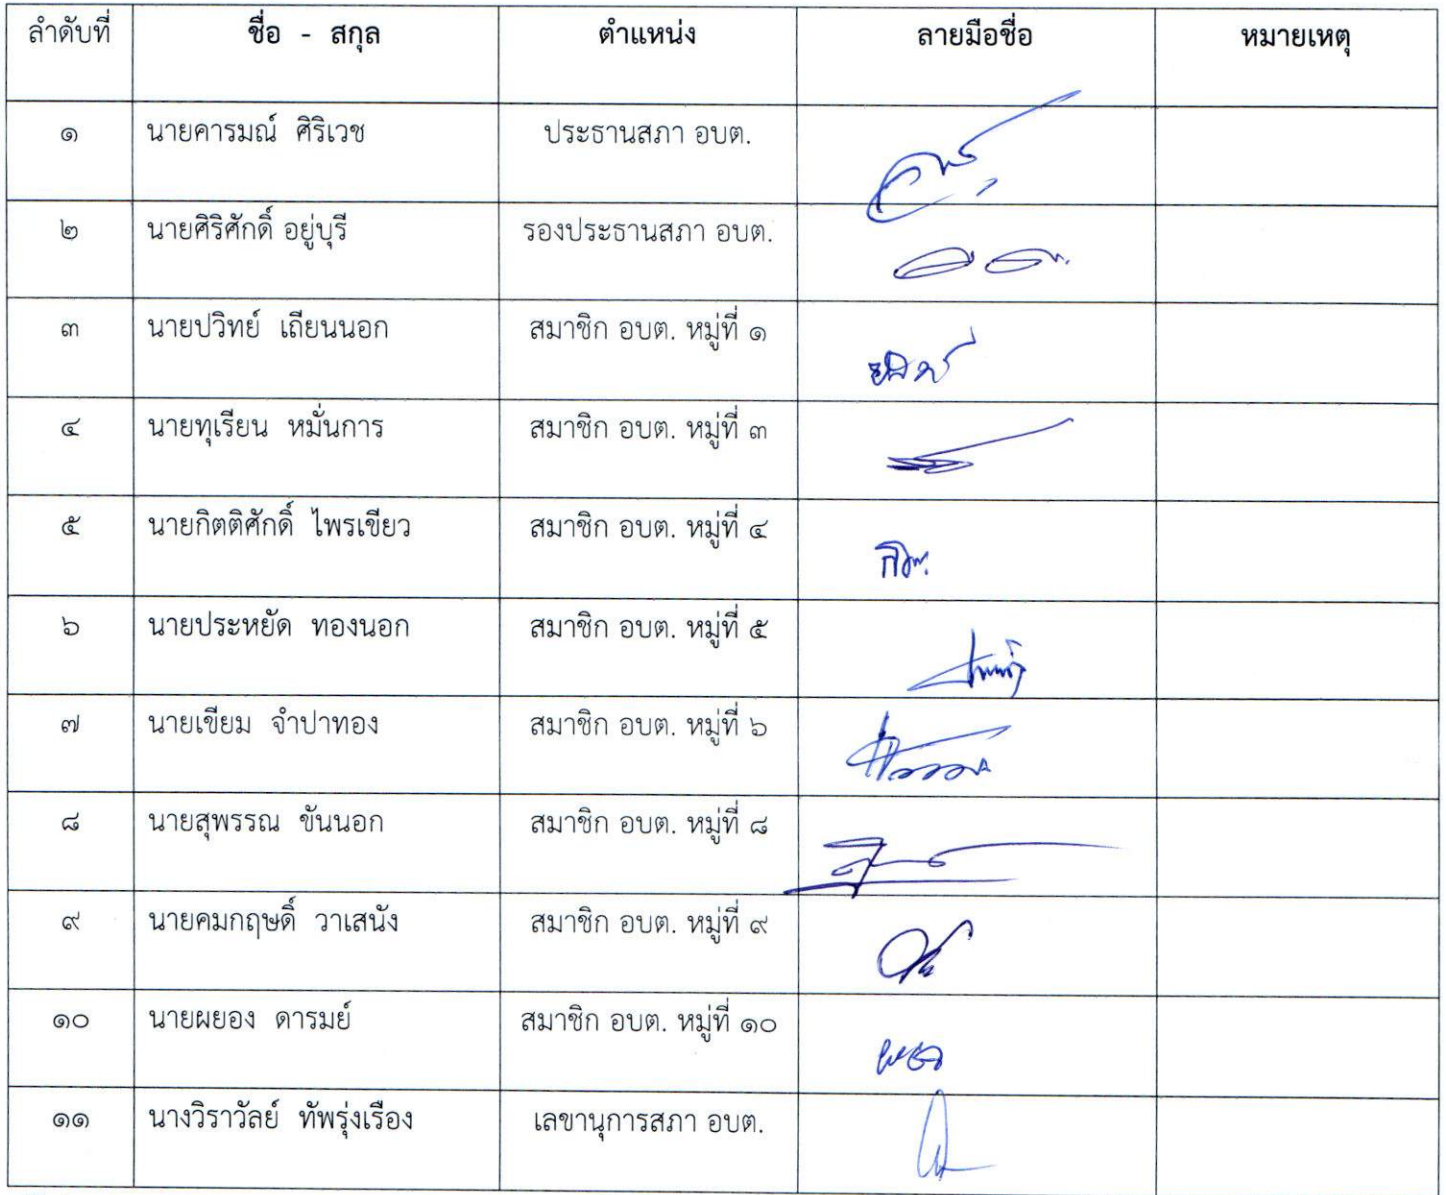 ลำดับที่ ชื่อ - สกุล ตำแหน่ง ลายมือชื่อ หมายเหตุ
๑ นายคารมณ์ ศิริเวช ประธานสภา อบต.
๒ นายศิริศักดิ์ อยู่บุรี รองประธานสภา อบต.
๓ นายปวิทย์ เถียนนอก สมาชิก อบต. หมู่ที่ ๑
๔ นายทุเรียน หมั่นการ สมาชิก อบต. หมู่ที่ ๓
๕ นายกิตติศักดิ์ ไพรเขียว สมาชิก อบต. หมู่ที่ ๔
๖ นายประหยัด ทองนอก สมาชิก อบต. หมู่ที่ ๕
๗ นายเขียม จำปาทอง สมาชิก อบต. หมู่ที่ ๖
๘ นายสุพรรณ ขันนอก สมาชิก อบต. หมู่ที่ ๘
๙ นายคมกฤษดิ์ วาเสนัง สมาชิก อบต. หมู่ที่ ๙
๑๐ นายผยอง ดารมย์ สมาชิก อบต. หมู่ที่ ๑๐
๑๑ นางวิราวัลย์ ทัพรุ่งเรือง เลขานุการสภา อบต.